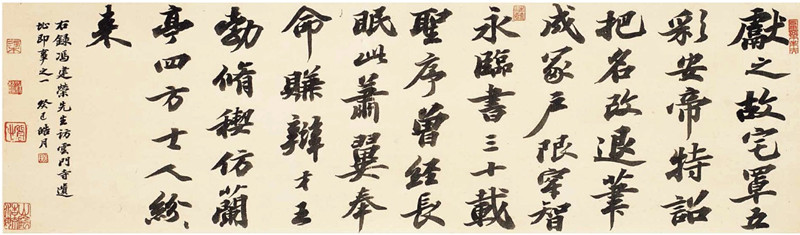 獻之故宅罩五
彩安帝特詔
把名改退筆
成冢戶限穿智
永臨書三十載
聖序曾經長
眠此蕭翼奉
命賺辯才王
勃脩禊仿蘭
亭四方士人紛〻
来
右錄馮建榮先生訪雲門寺遺
址即事之一 癸巳皓月